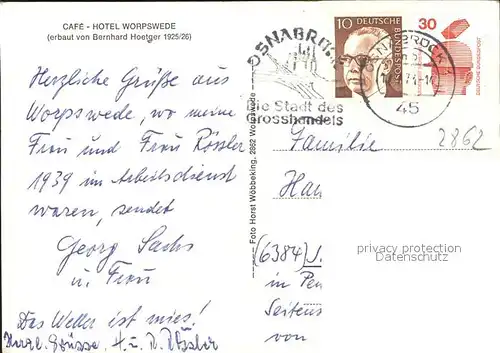 CAFÉ - HOTEL WORPSWEDE
(erbaut von Bernhard Hoetger 1925/26)
Herzliche Grüße aus
Worpswede, wo meine
Frau und Frau Rössler
1939 im Arbeitsdienst
waren, sendet
Georg Sachs
u. Frau
Das Wetter ist mies!
Herzl. Grüsse, H. u. R. Rössler
Foto Horst Wöbbeking, 2862 Worpswede
OSNABRÜCK
die Stadt des
Grosshandels
10
DEUTSCHE
BUNDESPOST
30
OSNABRÜCK
45
2862
Familie
Han
(6384) J.
in Pen
Seitens
von
privacy protection
Datenschutz